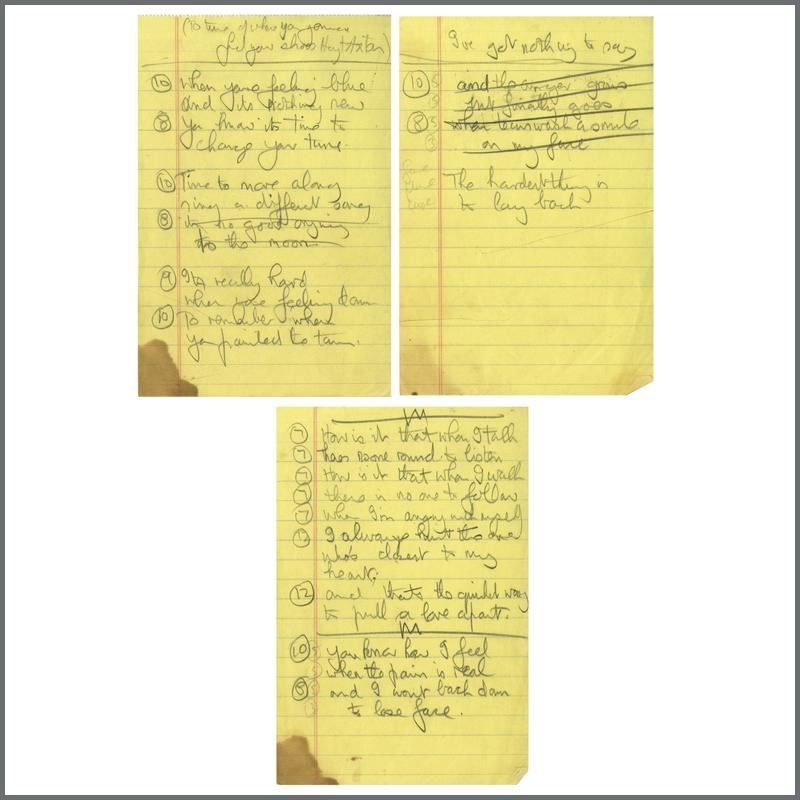 (To tune of when you gonna
find your shoes Hey Mister)
⑩ when youre feeling blue
and its nothing new
⑧ You know its time to
change your tune.
⑩ Time to move along
sing a different song
⑧ its no good crying
to the moon
⑨ Its really hard
when youre feeling down
⑩ To remember when
you painted the town.
I've got nothing to say
⑩ 5 and the anger grows
5 but finally goes
⑧ 5 when tears wash a smile
3 on my face
face
place
ease
The hardest thing is
to lay back
⑦ How is it that when I talk
⑦ theres noone round to listen
⑦ How is it that when I walk
⑦ there is no one to follow
⑦ when I'm angry with myself
⑫ I always hurt the one
who's closest to my
heart;
⑫ and thats the quickest way
to pull a love apart.
⑩ you know how I feel
when the pain is real
⑧ and I wont back down
to lose face.